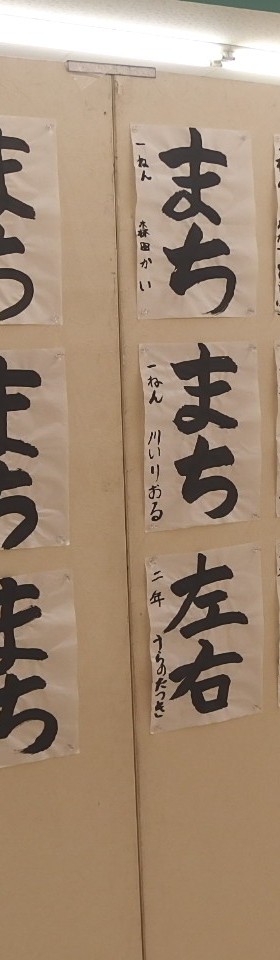 まち
一ねん 森田かい
まち
一ねん 川いりおる
左右
二年 うらのたつき
まち
まち
まち